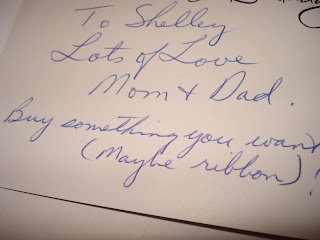 To Shelley
Lots of Love
Mom & Dad.
Buy something you want
(Maybe ribbon)!